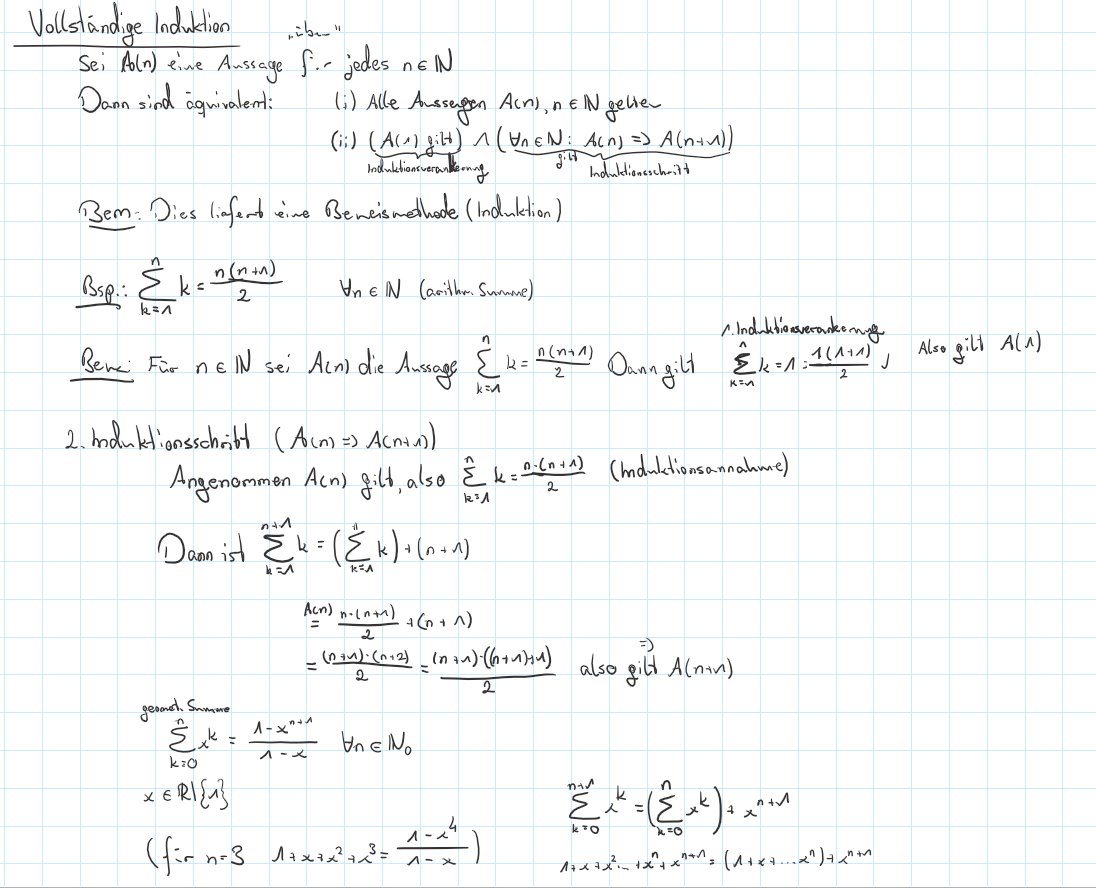 Vollständige Induktion
„üben"
Sei A(n) eine Aussage für jedes n ∈ ℕ
Dann sind äquivalent: (i) Alle Aussagen A(n), n ∈ ℕ gelten
(ii) (A(1) gilt) ∧ (∀n ∈ ℕ: A(n) => A(n+1))
Induktionsverankerung gilt Induktionsschritt
Bem: Dies liefert eine Beweismethode (Induktion)
Bsp.: ∑_{k=1}^{n} k = n(n+1)/2 ∀n ∈ ℕ (arithm. Summe)
1. Induktionsverankerung
Bew: Für n ∈ ℕ sei A(n) die Aussage ∑_{k=1}^{n} k = n(n+1)/2 Dann gilt ∑_{k=1}^{n} k = 1 = 1(1+1)/2 ✓ Also gilt A(1)
2. Induktionsschritt (A(n) => A(n+1))
Angenommen A(n) gilt, also ∑_{k=1}^{n} k = n·(n+1)/2 (Induktionsannahme)
Dann ist ∑_{k=1}^{n+1} k = (∑_{k=1}^{n} k) + (n+1)
A(n)
= n·(n+1)/2 + (n+1)
= (n+1)·(n+2)/2 = (n+1)·((n+1)+1)/2 => also gilt A(n+1)
geomet. Summe
∑_{k=0}^{n} x^k = (1-x^{n+1})/(1-x) ∀n ∈ ℕ₀
x ∈ ℝ\{1}
(für n=3 1+x+x²+x³ = (1-x⁴)/(1-x))
∑_{k=0}^{n+1} x^k = (∑_{k=0}^{n} x^k) + x^{n+1}
1+x+x²...+x^n+x^{n+1} = (1+x+...x^n)+x^{n+1}